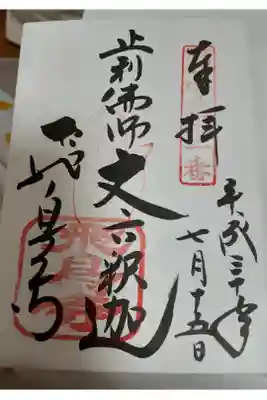 奉拝
平成三十年
七月十五日
止利佛師 丈六釈迦
飛鳥寺